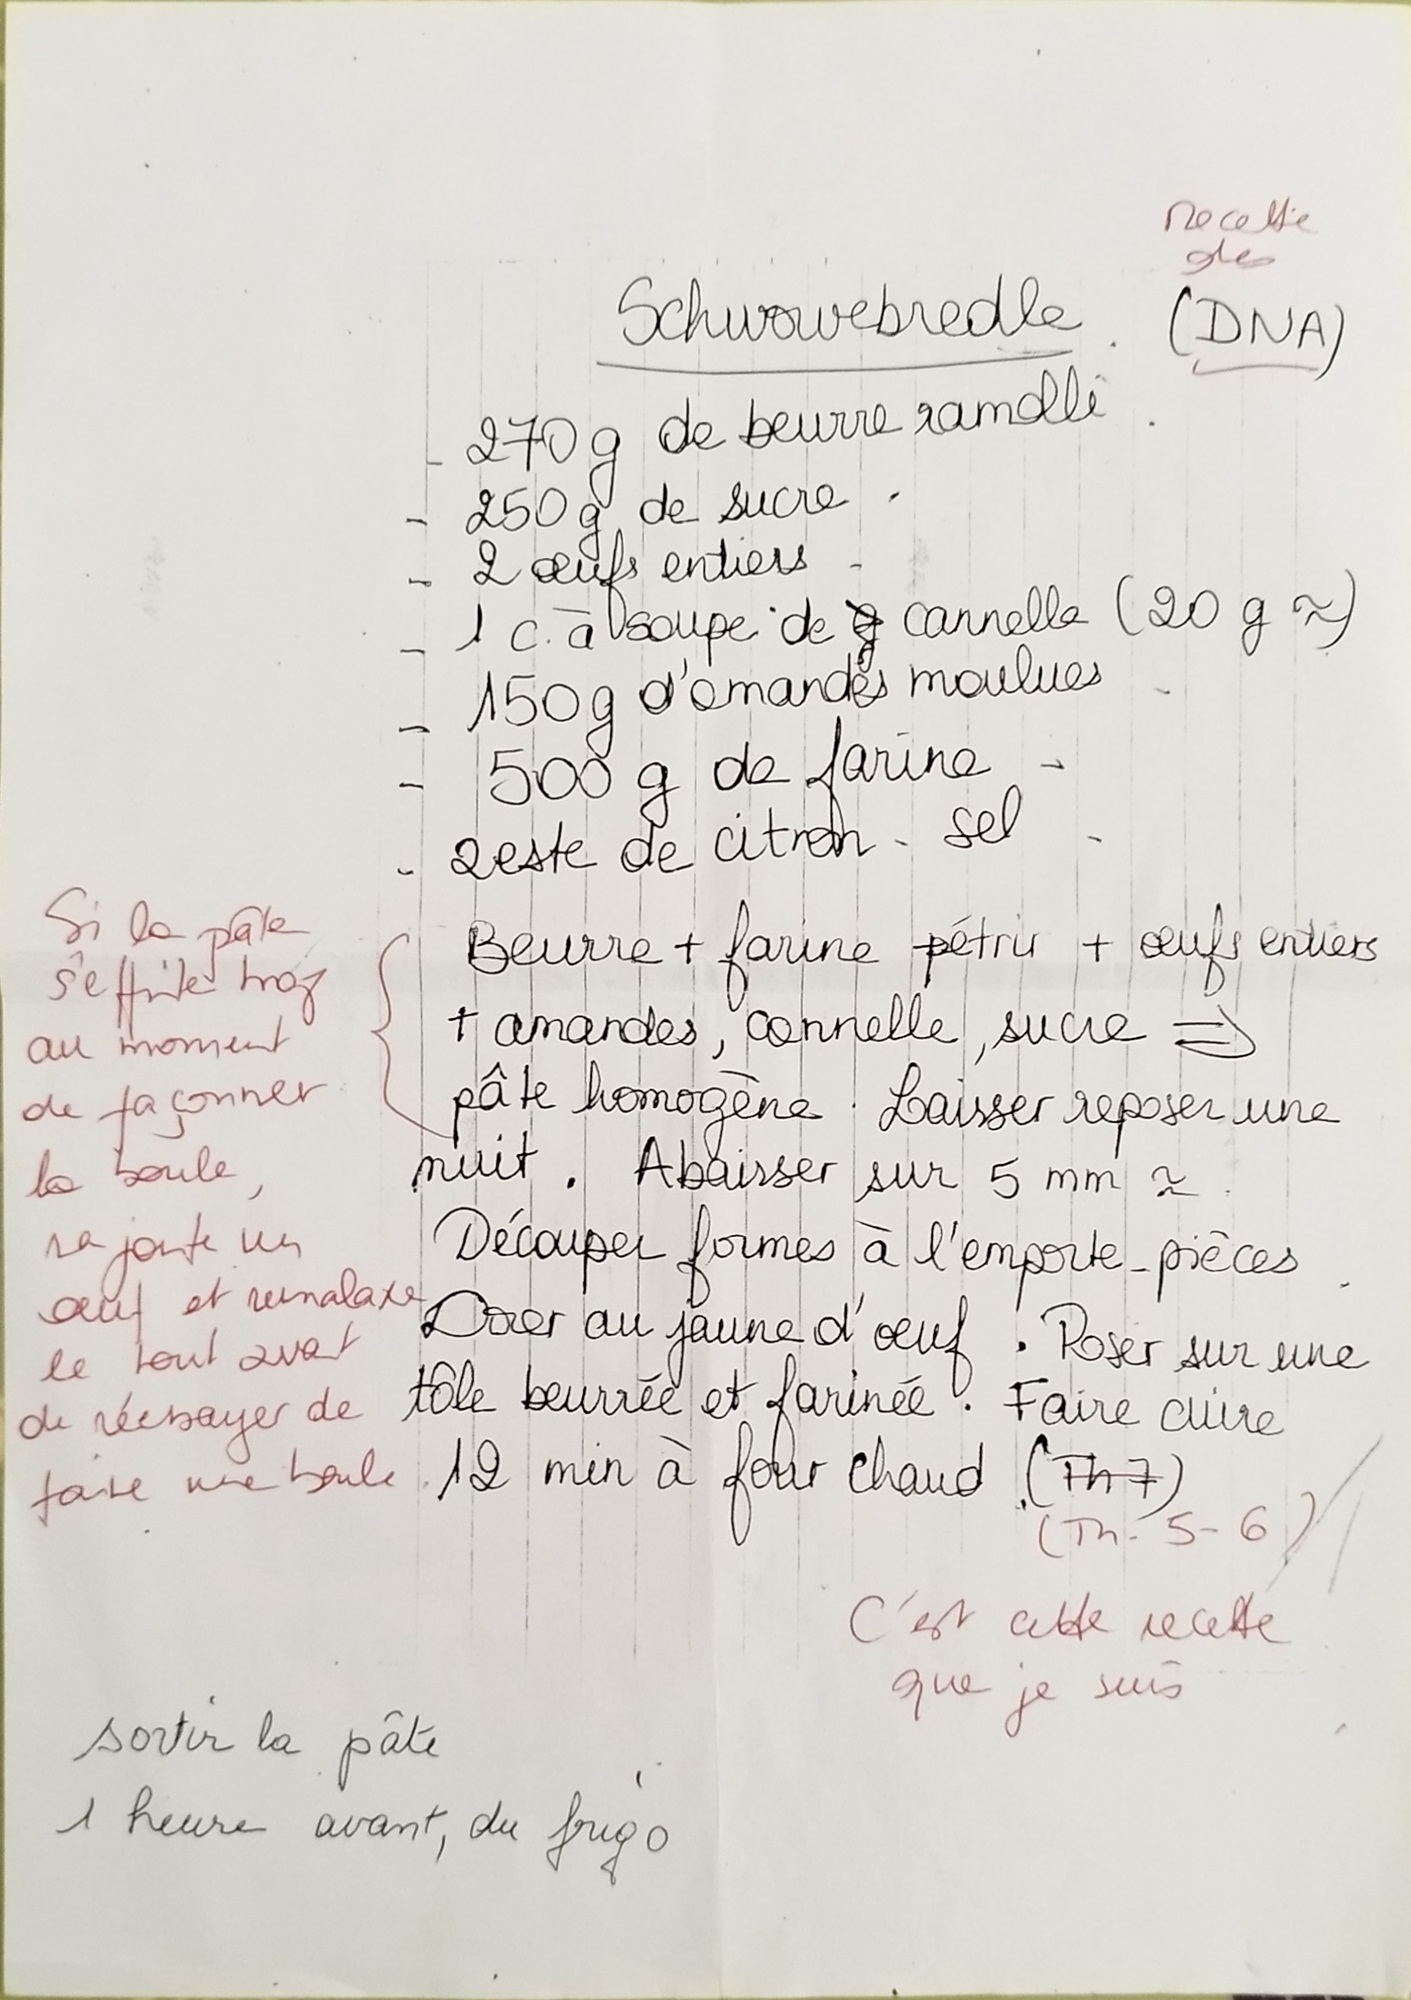 Recette
des
Schwowebredle (DNA)
- 270 g de beurre ramolli
- 250 g de sucre
- 2 œufs entiers
- 1 c. à soupe de cannelle (20 g ≈)
- 150 g d'amandes moulues
- 500 g de farine
- zeste de citron - sel
Beurre + farine pétrir + œufs entiers
+ amandes, cannelle, sucre ⇒
pâte homogène. Laisser reposer une
nuit. Abaisser sur 5 mm ≈
Découper formes à l'emporte-pièces
Dorer au jaune d'œuf. Poser sur une
tôle beurrée et farinée. Faire cuire
12 min à four chaud (Th 7)
(Th. 5-6)
Si la pâte
s'effrite trop
au moment
de façonner
la boule,
rajoute un
œuf et remalaxe
le tout avant
de réessayer de
faire une boule
C'est cette recette
que je suis
sortir la pâte
1 heure avant, du frigo